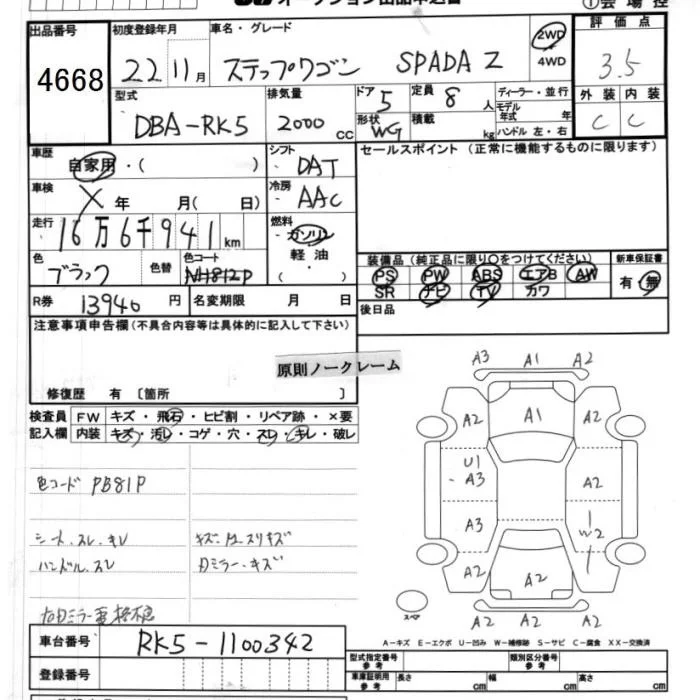 出品番号
4668
初度登録年月
22 11月
車名・グレード
ステップワゴン SPADA Z
2WD
4WD
評価点
3.5
型式
DBA-RK5
排気量
2000 CC
ドア 5
形状 WG
定員 8 人
積載 kg
ディーラー・並行
モデル年式 年
ハンドル 左・右
外装 内装
C C
車歴
自家用・( )
シフト
DAT
セールスポイント(正常に機能するものに限ります)
車検
X 年 月( 日)
冷房
AAC
走行
16万6千941km
燃料
ガソリン
軽油
( ・ )
色
ブラック
色替
色コード
NH812P
装備品(純正品に限り○をつけてください)
PS PW ABS エアB AW
SR ナビ TV カワ
新車保証書
有・無
R券 13940 円
名変期限 月 日
後日品
注意事項申告欄(不具合内容等は具体的に記入して下さい)
原則ノークレーム
修復歴 有〔箇所 〕
検査員記入欄
FW キズ・飛石・ヒビ割・リペア跡・×要
内装 キズ・汚レ・コゲ・穴・スレ・キレ・破レ
色コード PB81P
シート.スレ.キレ
ハンドル.スレ
キズ.
ミラー.キズ
A3 A1 A2
A2 A1 A2
U1
A3 A2
A3 W2
A2 A2 A2
A2 A2
スペア
A-キズ E-エクボ U-凹み W-補修跡 S-サビ C-腐食 XX-交換済
車台番号
RK5-1100342
登録番号
型式指定番号
参考
類別区分番号
参考
車庫証明用
参考
長さ cm 幅 cm 高さ cm